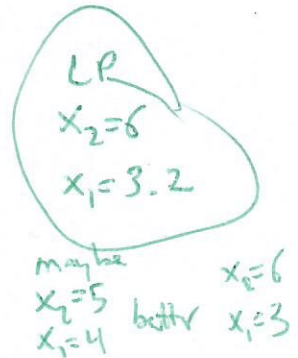 LP
x₂=6
x₁=3.2
maybe
x₂=5
x₁=4
better
x₂=6
x₁=3